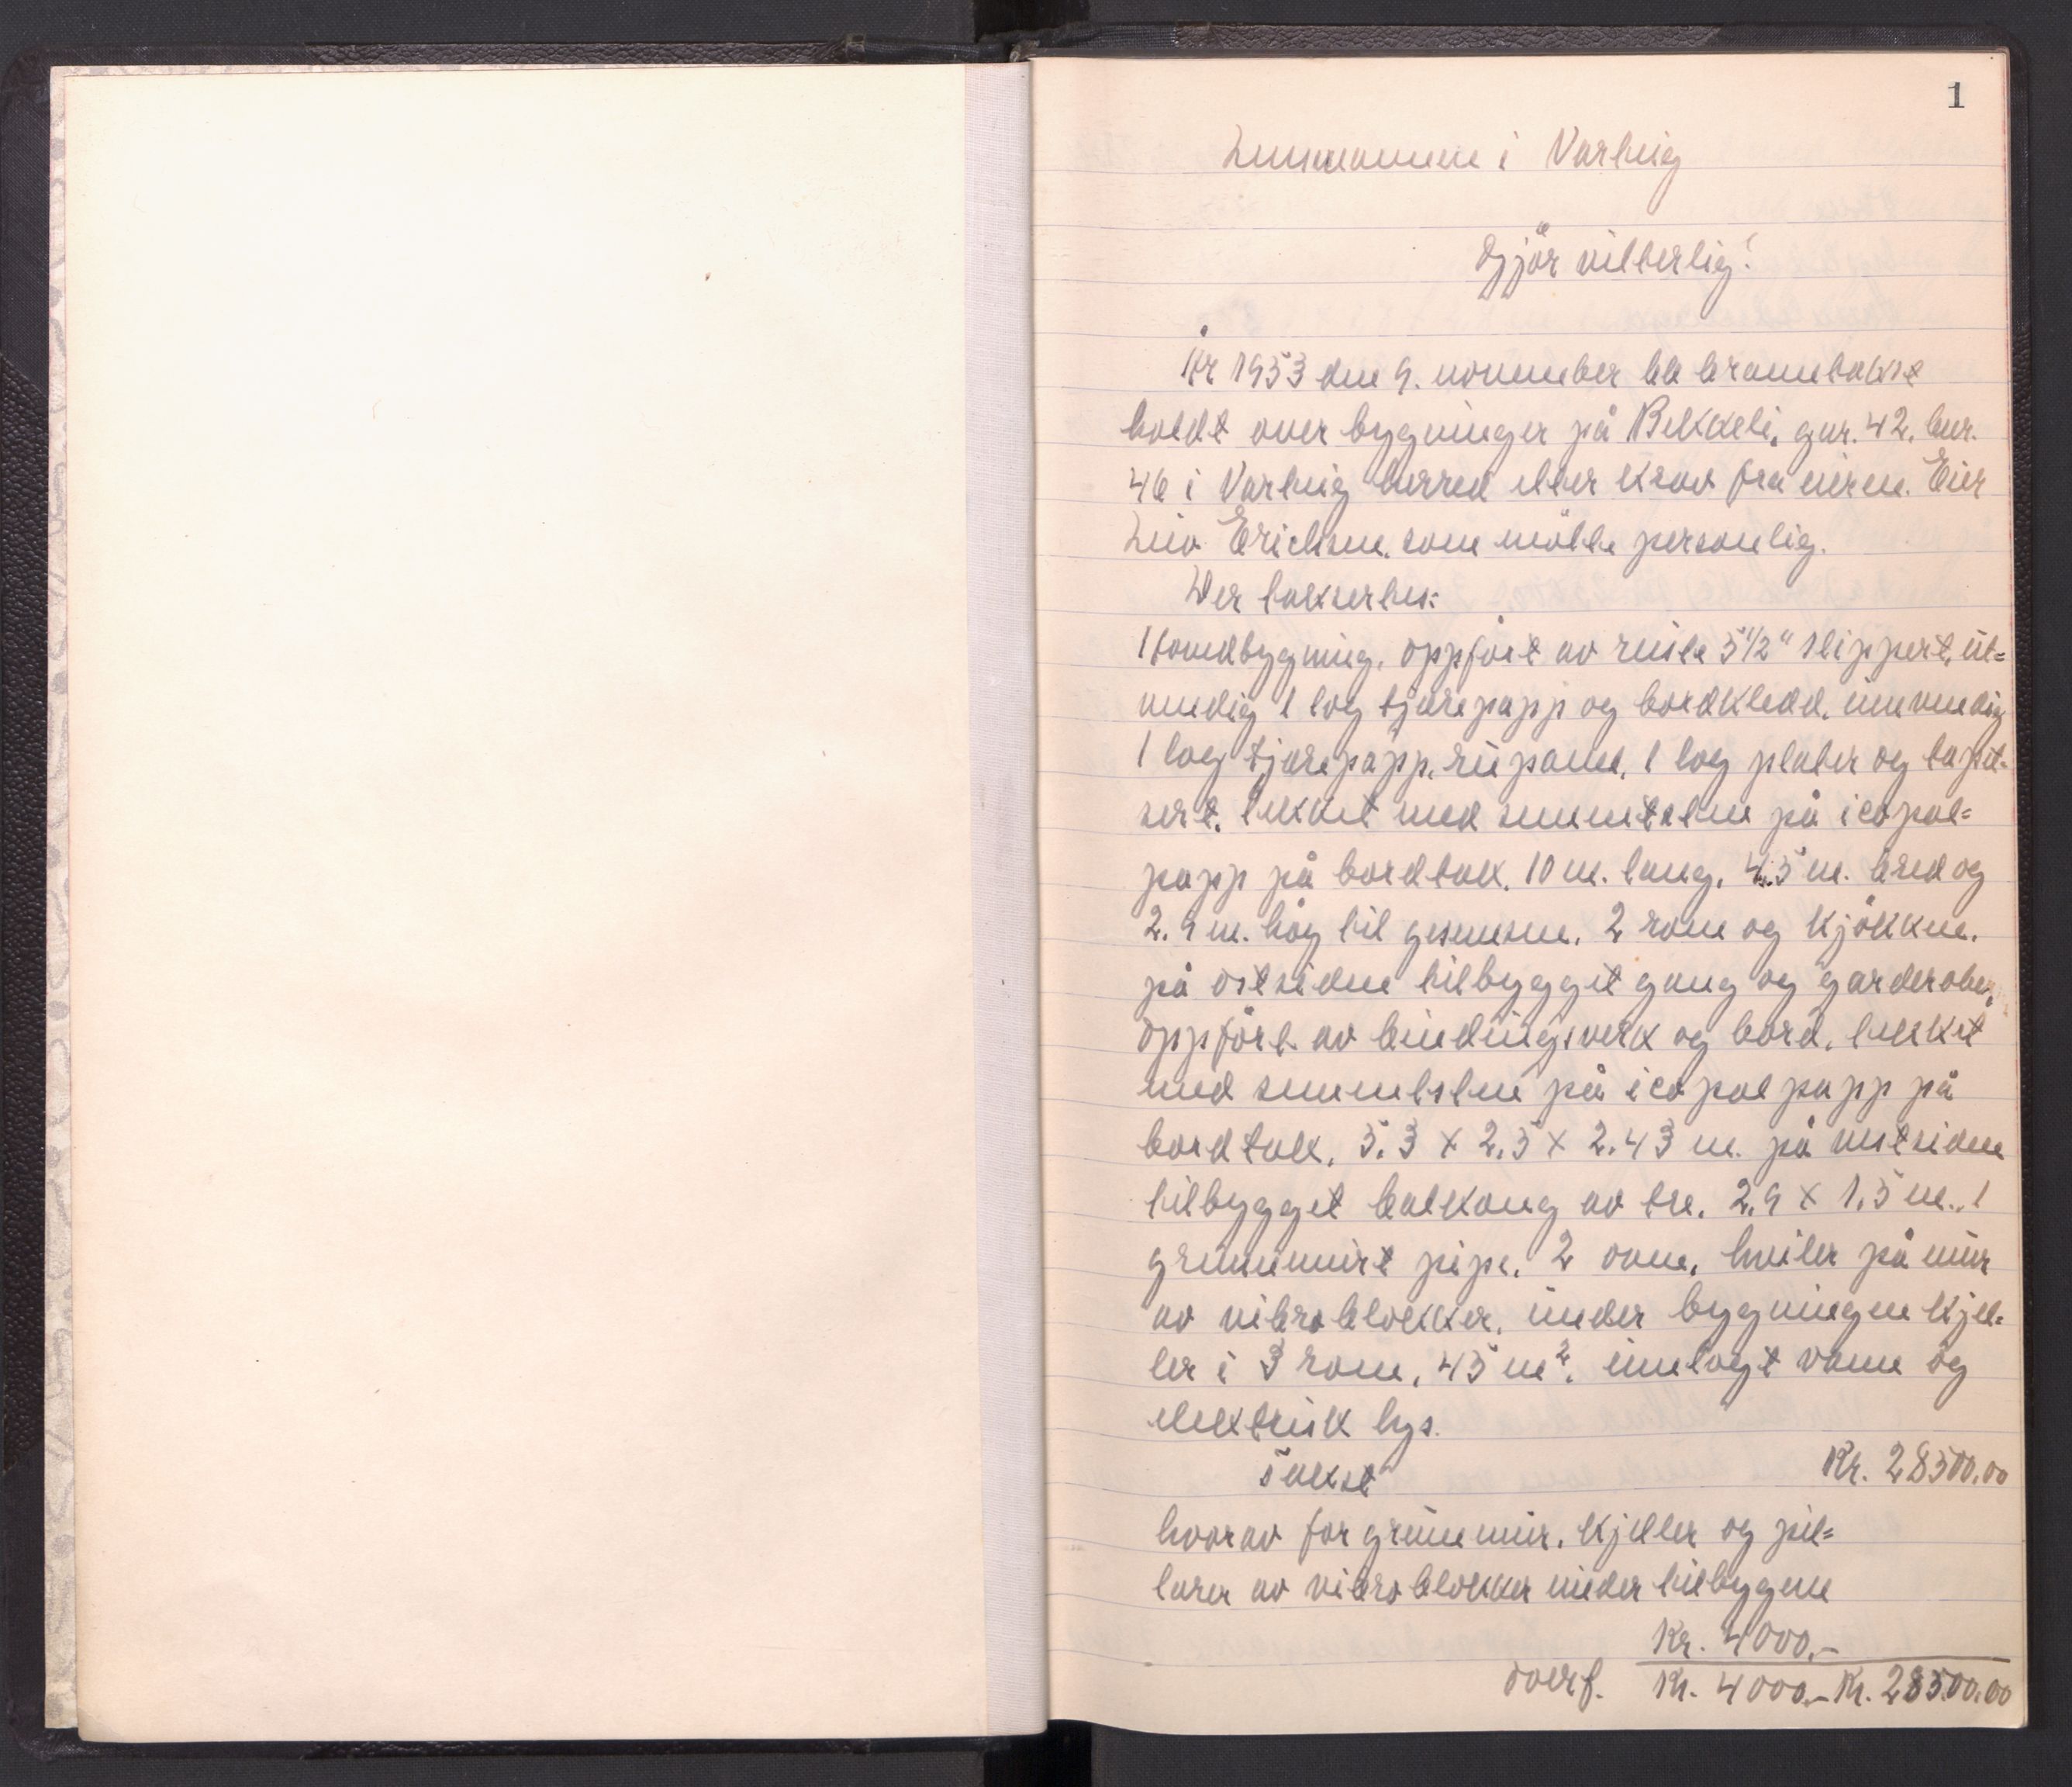 1
Lensmannen i Varteig
Gjør vitterlig:
År 1953 den 9. november ble branntakst
holdt over bygninger på Bekkeli, gnr. 42, bnr.
46 i Varteig herred etter krav fra eieren. Eier
Liv Erichsen, som møtte personlig.
Der taksertes:
Hovedbygning, oppført av reiste 5 1/2" slippert, ut=
vendig 1 lag tjærepapp og bordkledd, innvendig
1 lag tjærepapp, rupanel, 1 lag plater og tapet=
sert, tekket med sementsten på icopal=
papp på bordtak. 10 m. lang, 4.5 m. bred og
2.9 m. høg til gesemsen. 2 rom og kjøkken.
på østsiden tilbygget gang og garderobe,
oppført av bindingsverk og bord, tekket
med sementsten på icopalpapp på
bordtak. 5.3 x 2.5 x 2.43 m. på vestsiden
tilbygget balkong av tre. 2.9 x 1.5 m., 1
grunnmurt pipe, 2 ovne, hviler på mur
av vibroblokker, under bygningen kjel=
ler i 3 rom, 45 m², innlagt vann og
elektrisk lys.
Takst Kr. 28500.00
hvorav for grunnmur, kjeller og pil=
larer av vibroblokker under tilbyggene
Kr. 4000.-
overf. Kr. 4000.- Kr. 28500.00